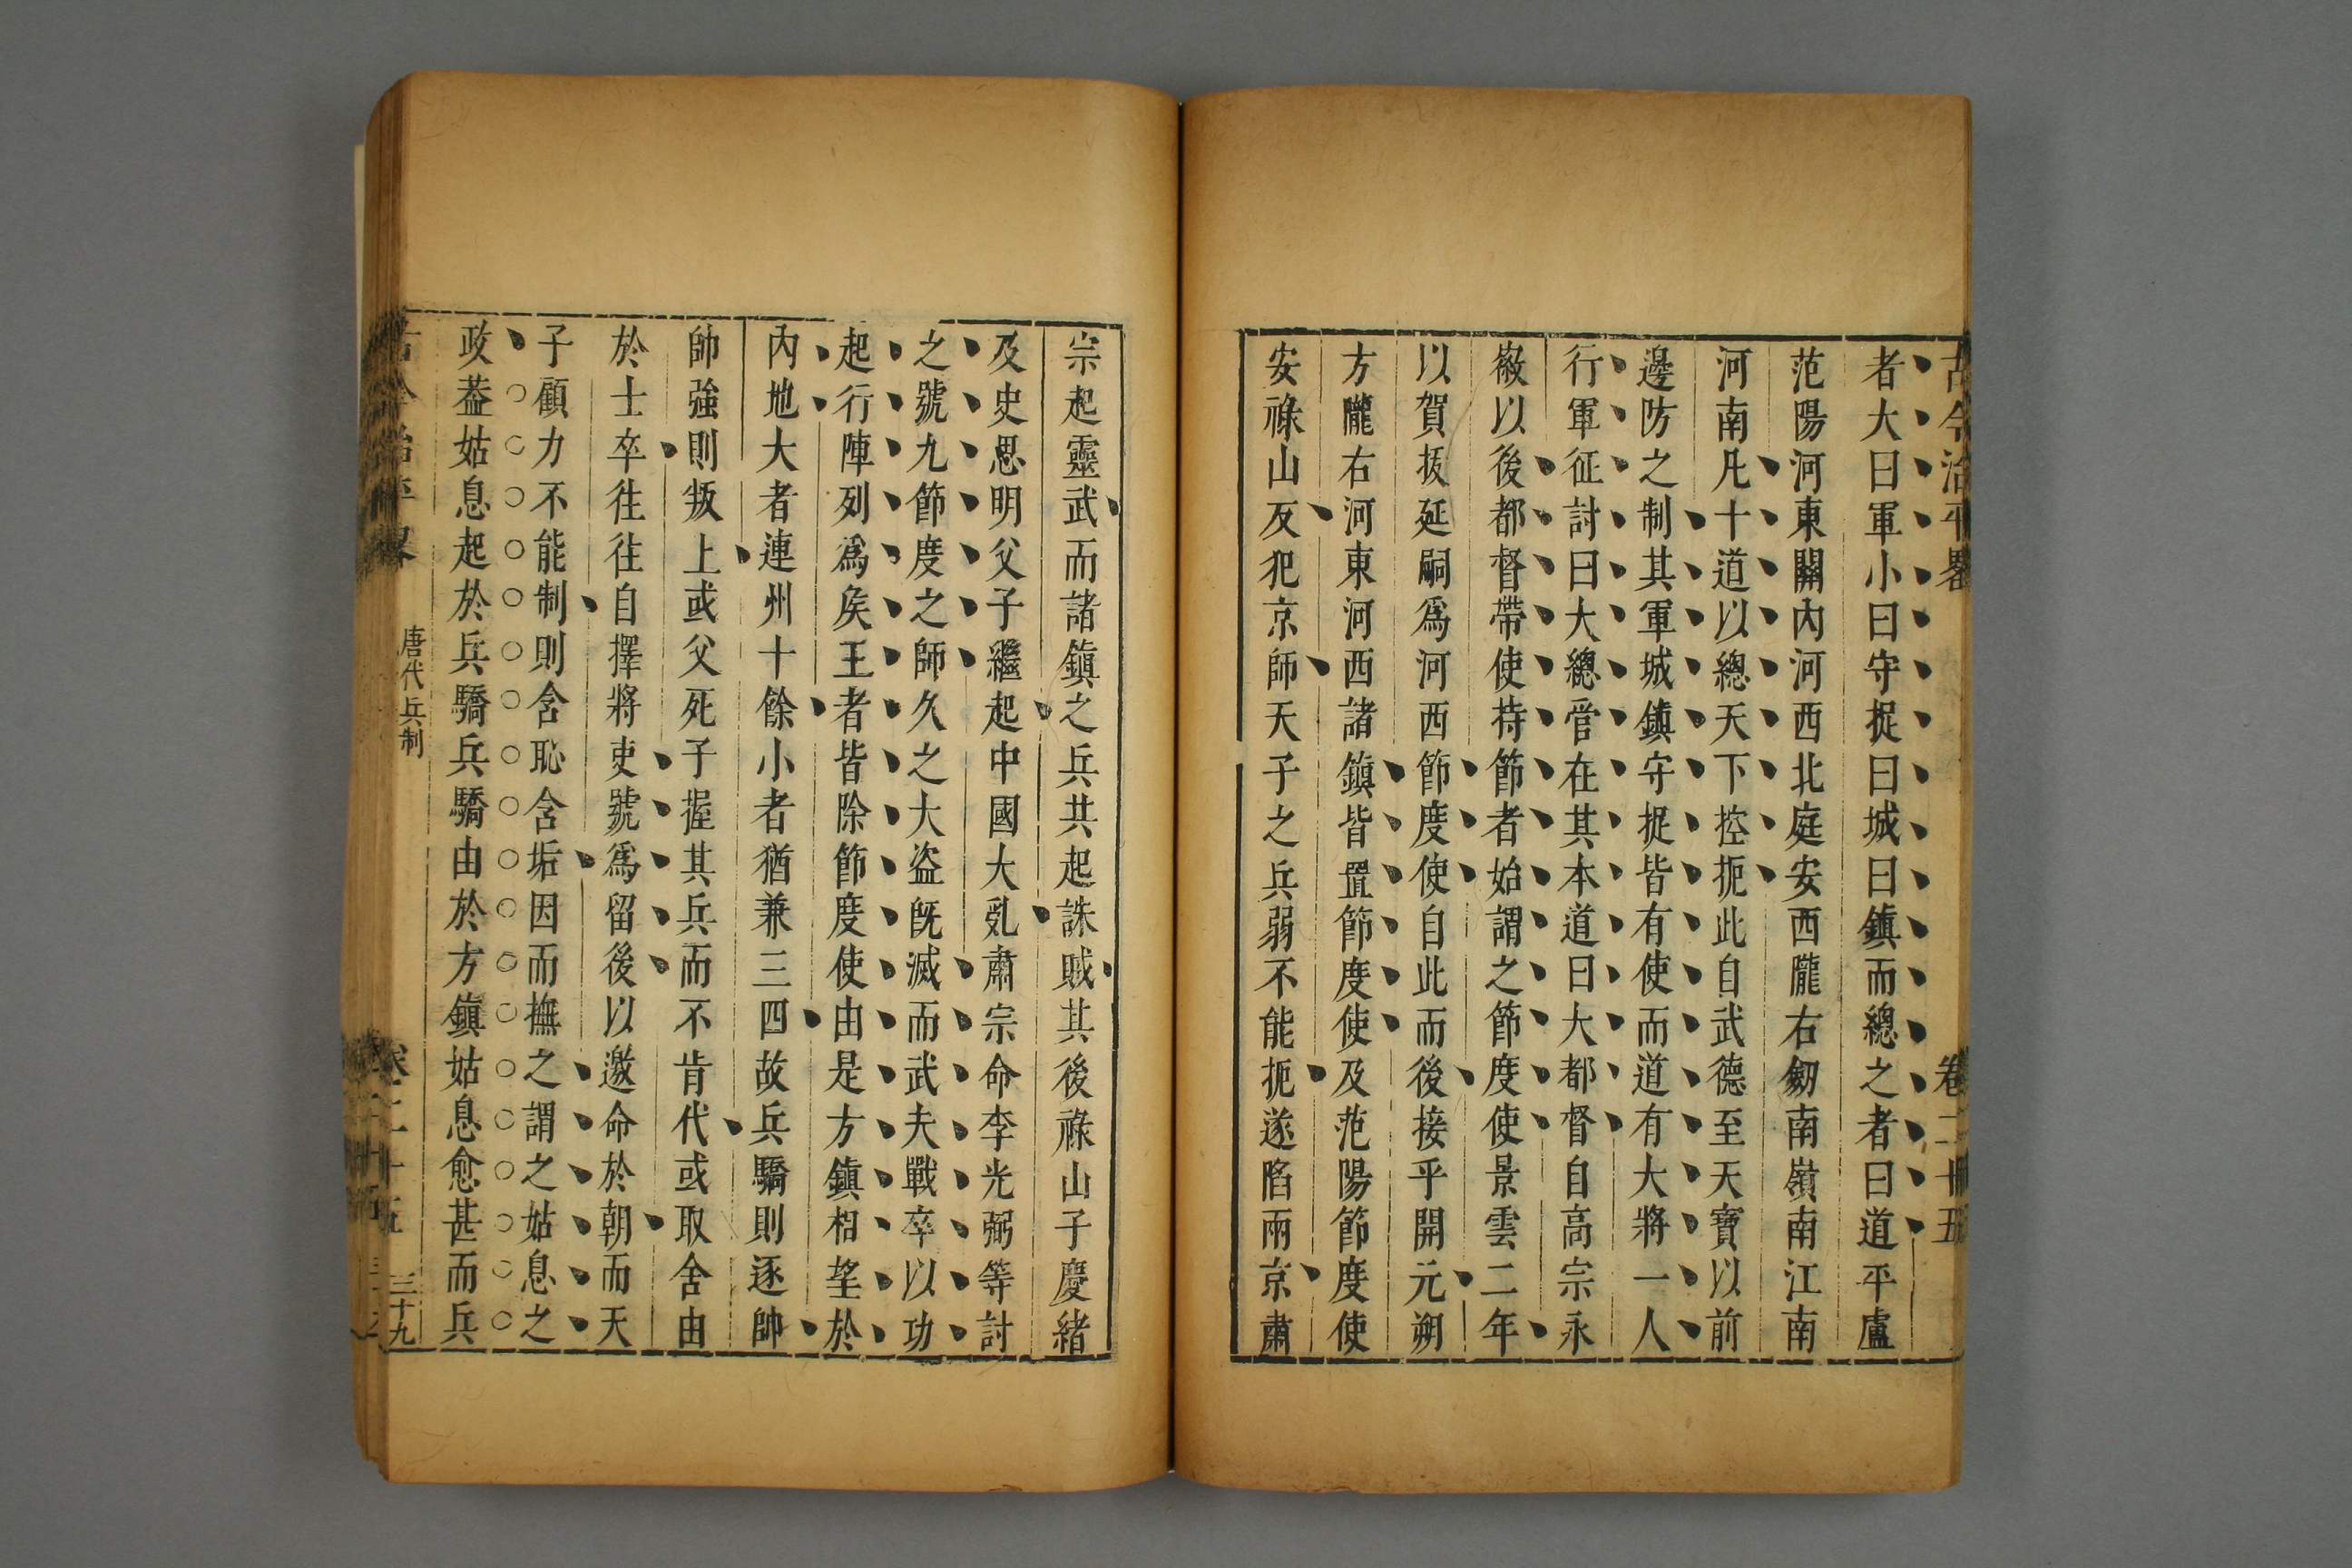 古今治平畧
卷二十五
者大曰軍小曰守捉曰城曰鎮而總之者曰道平盧
范陽河東關內河西北庭安西隴右劒南嶺南江南
河南凡十道以總天下控扼此自武德至天寶以前
邊防之制其軍城鎮守捉皆有使而道有大將一人
行軍征討曰大總管在其本道曰大都督自高宗永
徽以後都督帶使持節者始謂之節度使景雲二年
以賀拔延嗣爲河西節度使自此而後接乎開元朔
方隴右河東河西諸鎮皆置節度使及范陽節度使
安祿山反犯京師天子之兵弱不能扼遂陷兩京肅
宗起靈武而諸鎮之兵共起誅賊其後祿山子慶緒
及史思明父子繼起中國大亂肅宗命李光弼等討
之號九節度之師久之大盜旣滅而武夫戰卒以功
起行陣列爲矦王者皆除節度使由是方鎮相望於
內地大者連州十餘小者猶兼三四故兵驕則逐帥
帥強則叛上或父死子握其兵而不肯代或取舍由
於士卒往往自擇將吏號爲留後以邀命於朝而天
子顧力不能制則含恥含垢因而撫之謂之姑息之
政葢姑息起於兵驕兵驕由於方鎮姑息愈甚而兵
古今治平畧
唐代兵制
卷二十五
三十九